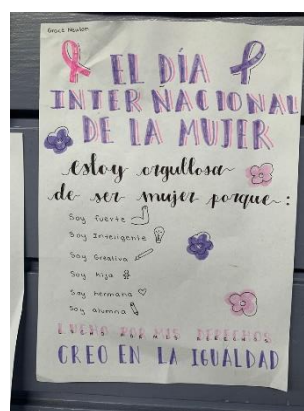 Grace Newton
EL DÍA
INTERNACIONAL
DE LA MUJER
estoy orgullosa
de ser mujer porque:
Soy fuerte
Soy Inteligente
Soy Creativa
Soy hija
Soy hermana
Soy alumna
LUCHO POR MIS DERECHOS
CREO EN LA IGUALDAD